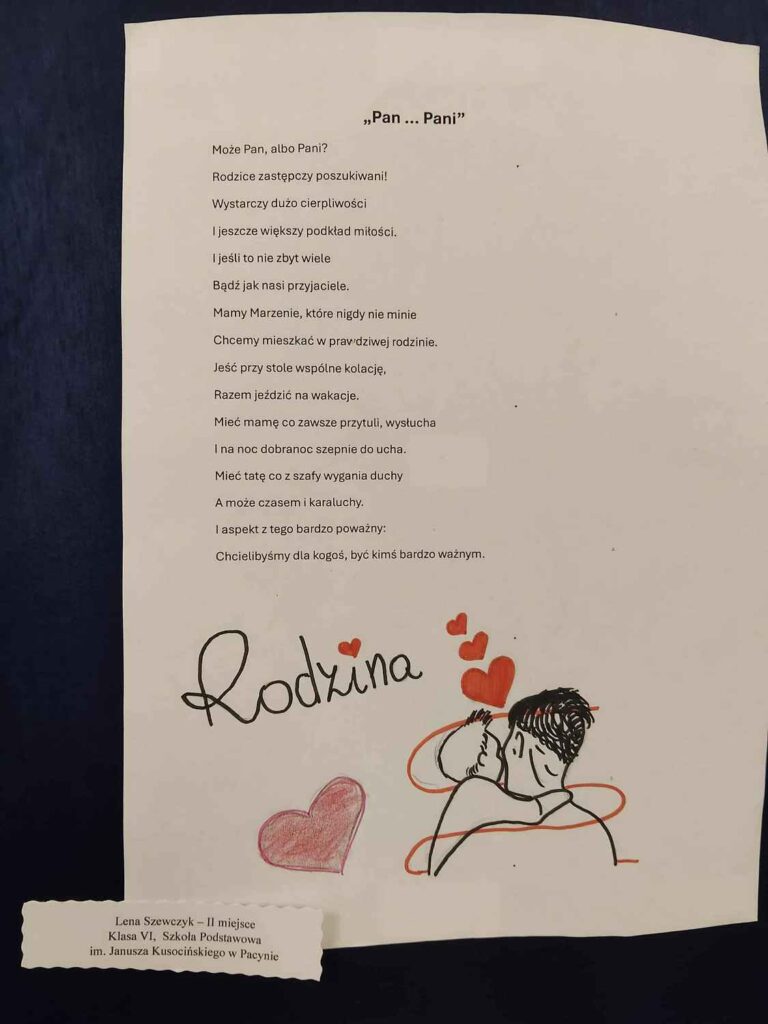 „Pan ... Pani”
Może Pan, albo Pani?
Rodzice zastępczy poszukiwani!
Wystarczy dużo cierpliwości
I jeszcze większy podkład miłości.
I jeśli to nie zbyt wiele
Bądź jak nasi przyjaciele.
Mamy Marzenie, które nigdy nie minie
Chcemy mieszkać w prawdziwej rodzinie.
Jeść przy stole wspólne kolację,
Razem jeździć na wakacje.
Mieć mamę co zawsze przytuli, wysłucha
I na noc dobranoc szepnie do ucha.
Mieć tatę co z szafy wygania duchy
A może czasem i karaluchy.
I aspekt z tego bardzo poważny:
Chcielibyśmy dla kogoś, być kimś bardzo ważnym.
Rodzina
Lena Szewczyk – II miejsce
Klasa VI, Szkoła Podstawowa
im. Janusza Kusocińskiego w Pacynie